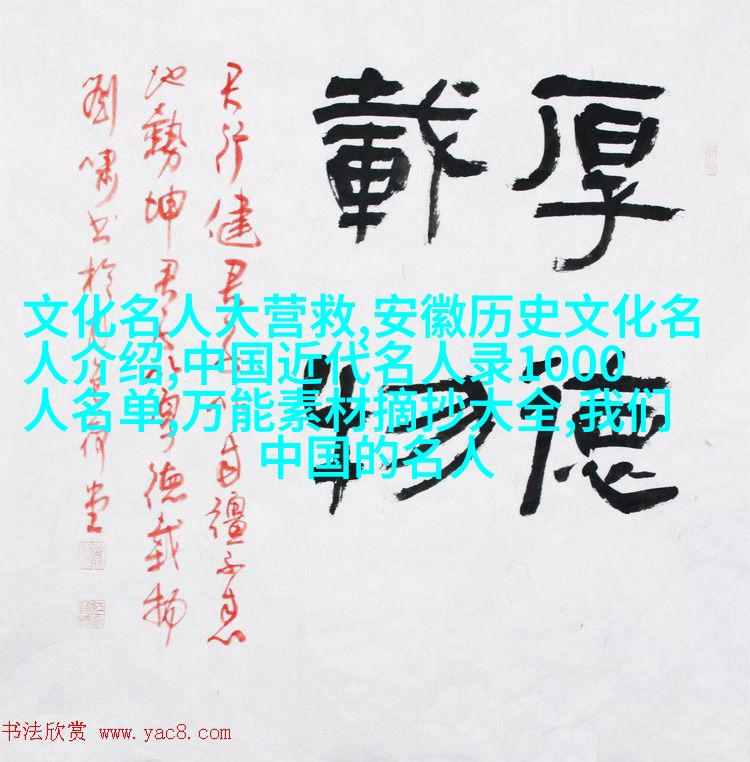 厚德
載物
天行健君子以自彊不息
地勢坤君子以厚德載物
劉嘯书於堂
文化名人大营救,安徽历史文化名
人介绍,中国近代名人录1000
人名单,万能素材摘抄大全,我们
中国的名人
书法欣赏 www.yac8.com